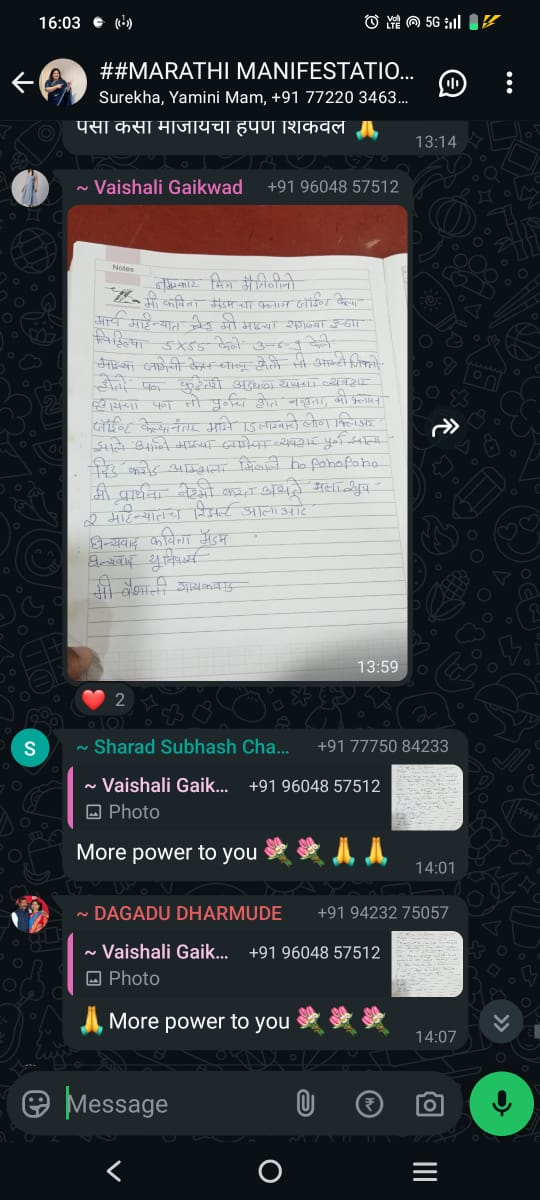 16:03
5G
##MARATHI MANIFESTATIO...
Surekha, Yamini Mam, +91 77220 3463...
पैसा कसा मोजायचा हेपण शिकवल 🙏
13:14
~ Vaishali Gaikwad +91 96048 57512
Notes
नमस्कार मित्र मैत्रिणींनो
मी कविता मॅडमचा क्लास जॉईंट केला
मार्च महिन्यात मी माझ्या सगळ्या इच्छा
लिहिल्या 5x55 केले 3-6-9 केले
माझ्या जागेची केस चालू होती ती आम्ही
होतो पण अडचण व्यवहार
पण तो पूर्णच होत नव्हता, मी क्लास
जॉईंट केल्यानंतर माझे 15 लाखाचे लोन
झाले आणि माझ्या जागेचा व्यवहार पूर्ण झाला
दिड करोड आम्हाला मिळाले ho poho poho
मी प्रार्थना नेहमी करत असते मला खूप
2 महिन्यातच रिझल्ट आला आहे
धन्यवाद कविता मॅडम
धन्यवाद युनिवर्स
मी वैशाली गायकवाड
13:59
❤️ 2
S
~ Sharad Subhash Cha... +91 77750 84233
~ Vaishali Gaik... +91 96048 57512
Photo
More power to you 💐💐🙏🙏
14:01
~ DAGADU DHARMUDE +91 94232 75057
~ Vaishali Gaik... +91 96048 57512
Photo
🙏 More power to you 💐💐💐
14:07
Message